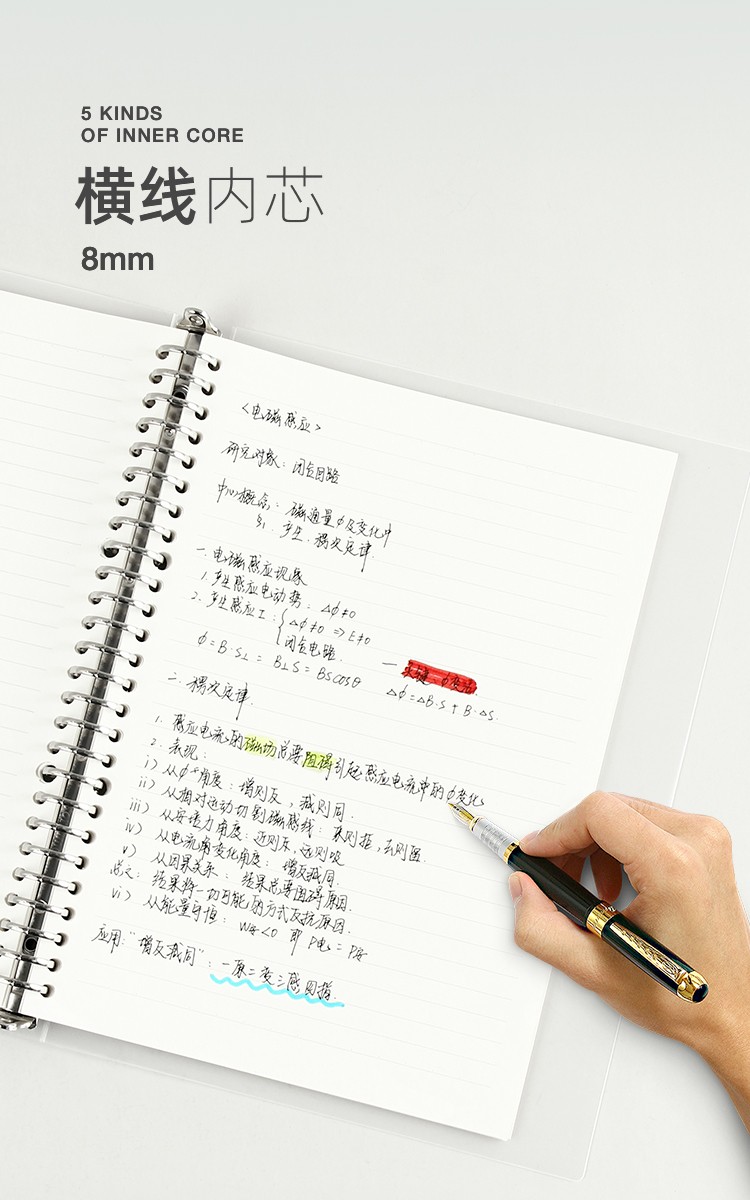 5 KINDS
OF INNER CORE
横线内芯
8mm
<电磁感应>
研究对象：闭合回路
中心概念：磁通量φ及变化中
产生．楞次定律
一．电磁感应现象
1．产生感应电动势：△φ≠0
2．产生感应I：{△φ≠0 => E≠0
闭合电路．
φ=B·S⊥ = B⊥S = BScosθ
△φ=△B·S + B·△S．
二．楞次定律．
1．感应电流的磁场总要阻碍引起感应电流中的φ变化
2．表现：
i）从φ角度：增则反，减则同．
ii）从相对运动切割磁感线：来则拒，去则留．
iii）从安培力角度：近则斥，远则吸
iv）从电流变化角度：增反减同．
v）从因果关系：结果总要阻碍原因．
总之：结果将一切可能的方式反抗原因．
vi）从能量守恒：W安<0 即 P电=P安
应用："增反减同"：一原二变三感四指．